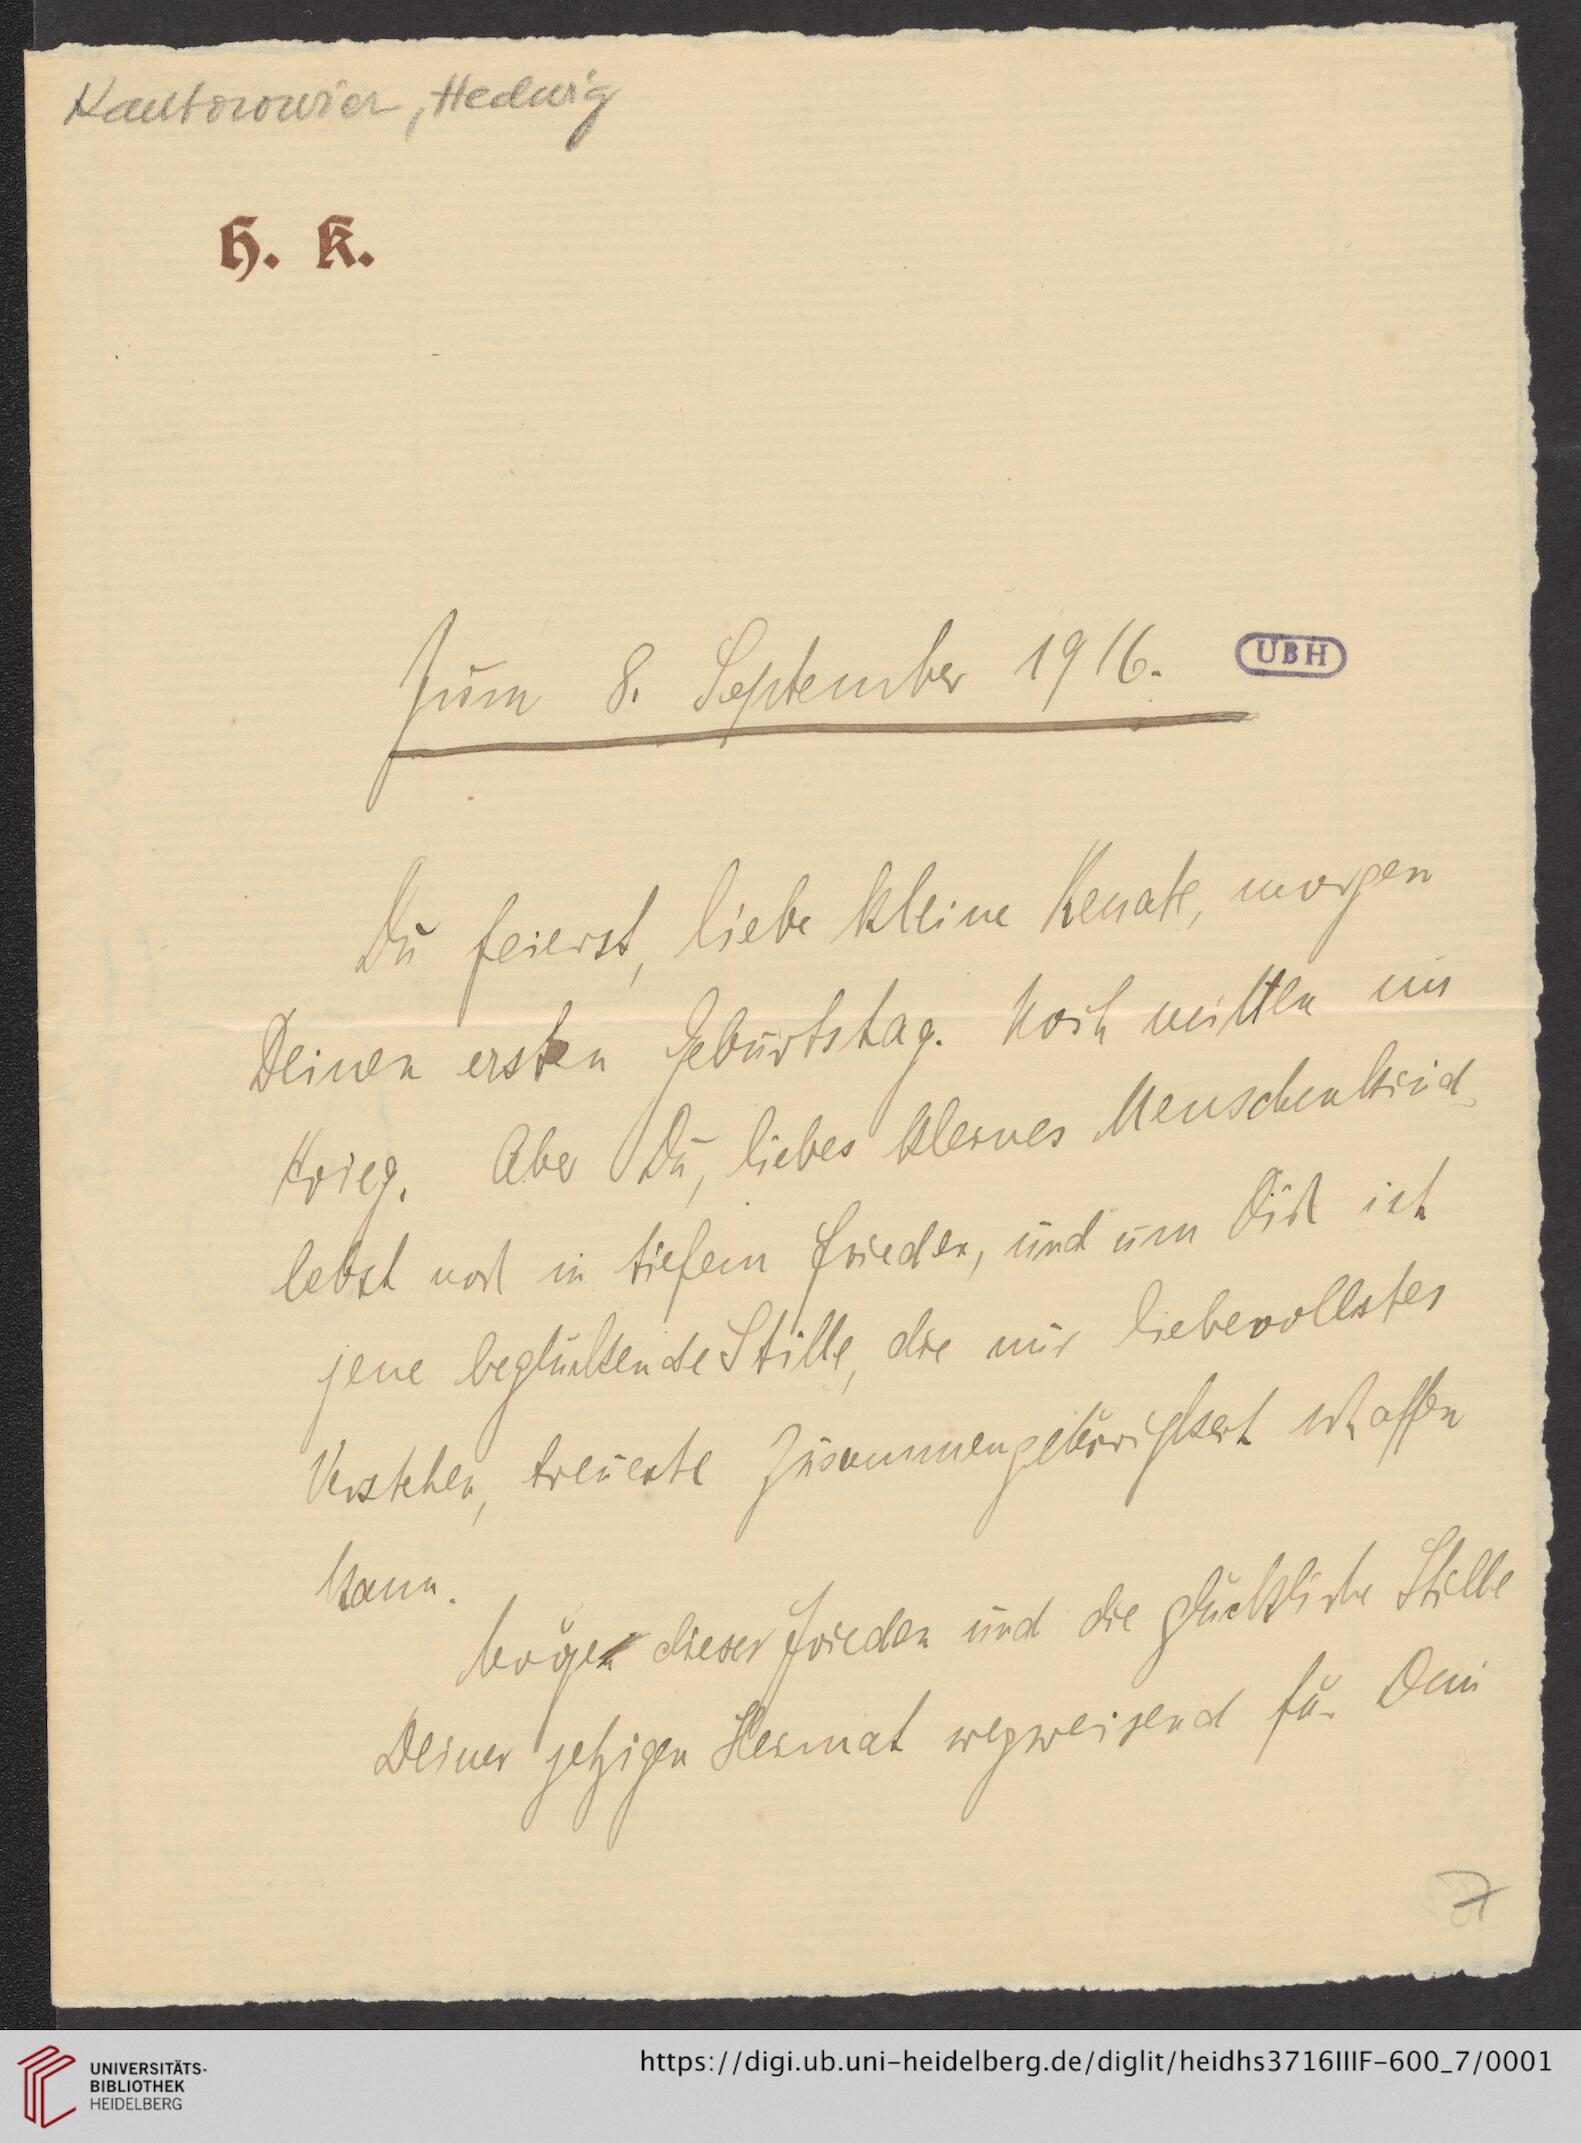 Kantorowicz, Hedwig
H. K.
Zum 8. September 1916.
UBH
Du feierst, liebe kleine Renate, morgen
Deinen ersten Geburtstag. Noch mitten im
Krieg. Aber Du, liebes kleines Menschenkind
lebst noch in tiefem Frieden, und um Dich ist
jene beglückende Stille, die nur liebevollstes
Verstehen, treueste Zusammengehörigkeit schaffen
kann.
Mögen dieser Frieden und die glückliche Stille
Deiner jetzigen Heimat wegweisend für Dein
7
UNIVERSITÄTS-
BIBLIOTHEK
HEIDELBERG
https://digi.ub.uni-heidelberg.de/diglit/heidhs3716IIIF-600_7/0001